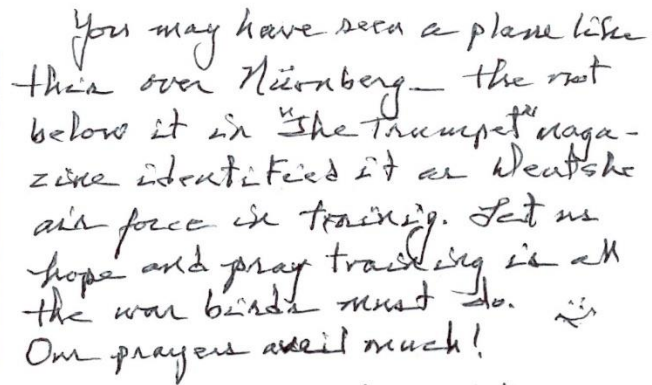 You may have seen a plane like
this over Nürnberg — the not
below it in "The Trumpet" maga-
zine identified it as Deutshe
air force in trainig. Let us
hope and pray training is all
the war birds must do.
Our prayers avail much!